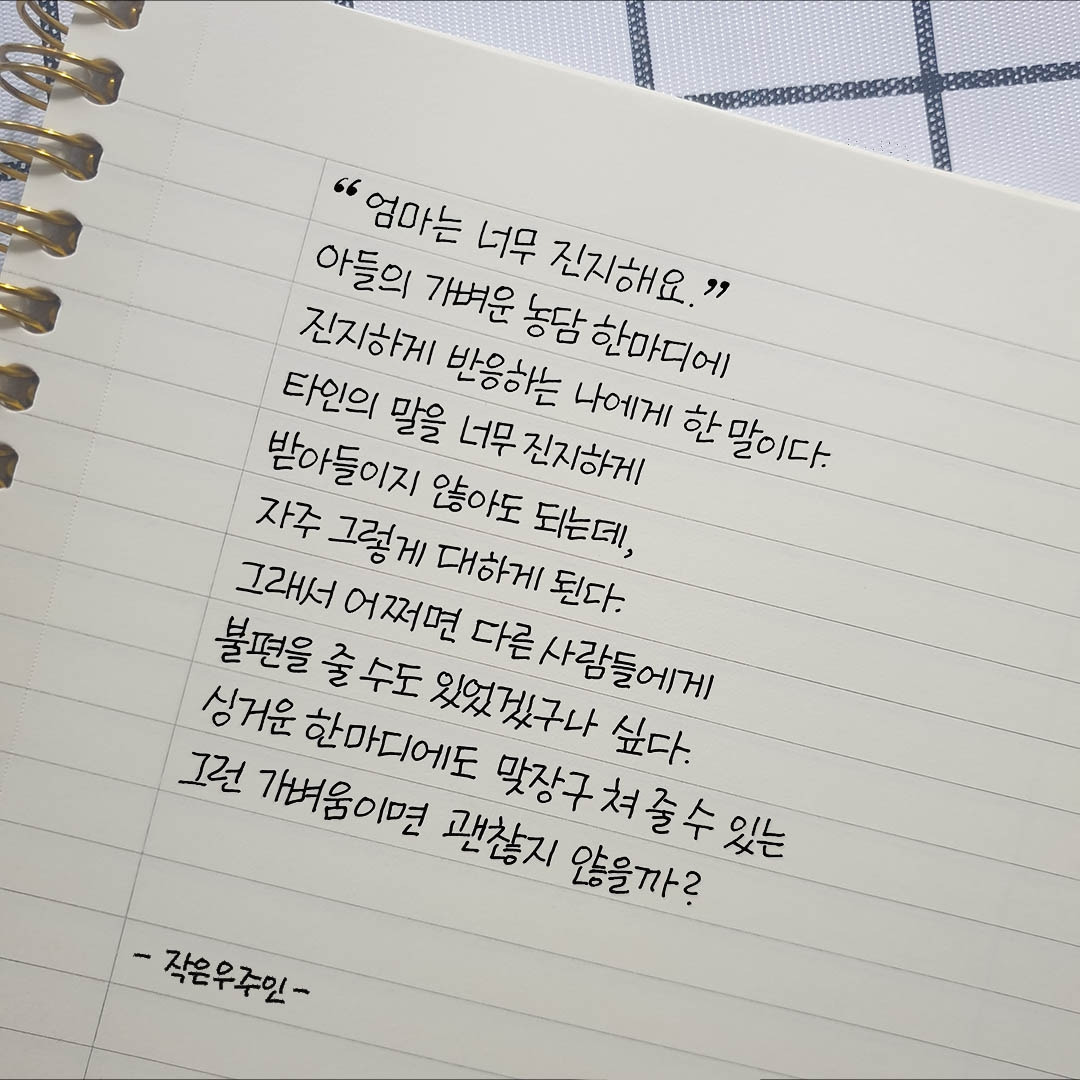 “엄마는 너무 진지해요.”
아들의 가벼운 농담 한마디에
진지하게 반응하는 나에게 한 말이다.
타인의 말을 너무 진지하게
받아들이지 않아도 되는데,
자주 그렇게 대하게 된다.
그래서 어쩌면 다른 사람들에게
불편을 줄 수도 있었겠구나 싶다.
싱거운 한마디에도 맞장구 쳐 줄 수 있는
그런 가벼움이면 괜찮지 않을까?
- 작은우주인 -